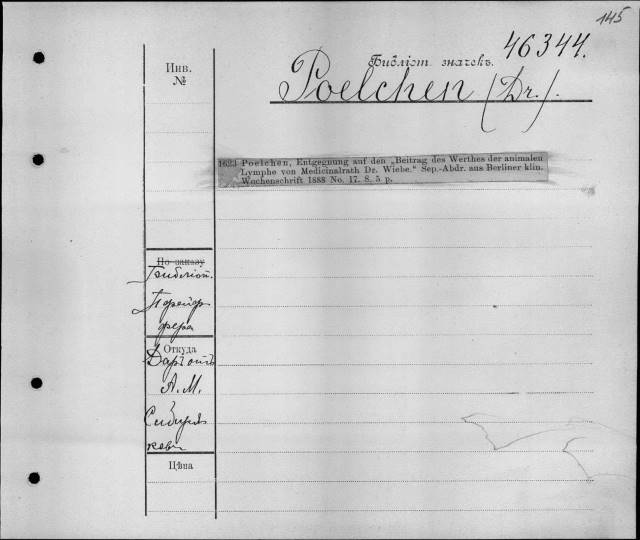 145
46344.
Библіот. значекъ.
Poelchen (Dr.).
Инв.
№
1623 Poelchen, Entgegnung auf den „Beitrag des Werthes der animalen
Lymphe von Medicinalrath Dr. Wiebe.“ Sep.-Abdr. aus Berliner klin.
Wochenschrift 1888 No. 17. 8. 5 p.
По заказу
Библіот.
Пфейф
фера
Откуда
Даръ отъ
А. М.
Сибиря
кова
Цѣна